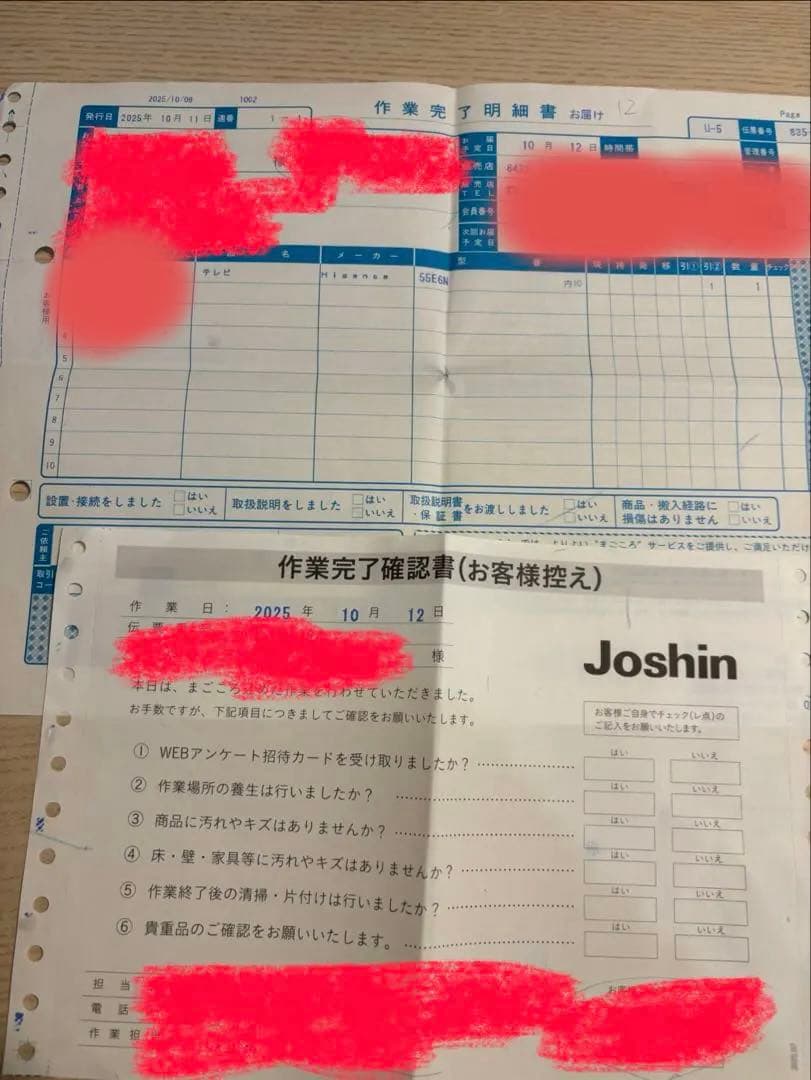 2025/10/09 1002
作業完了明細書 お届け 12
Page
発行日 2025年 10月 11日 連番 1 - 1
U-5 伝票番号 835-
お届予定日 10月 12日 時間帯
管理番号
販売店
販売店TEL
会員番号
次回お届予定日
名 メーカー 型 番 引① 引② 数量 チェック
テレビ Hisense 55E6N 内10 1 1
お客様用
5
6
7
8
9
10
設置・接続をしました はい いいえ
取扱説明をしました はい いいえ
取扱説明書・保証書をお渡ししました はい いいえ
商品・搬入経路に損傷はありません はい いいえ
ご依頼主
取引コー
"まごころ"サービスをご提供し、ご満足いただけ
作業完了確認書(お客様控え)
作業日: 2025年 10月 12日
伝票
様
Joshin
本日は、まごころ込めた作業を行わせていただきました。
お手数ですが、下記項目につきましてご確認をお願いいたします。
お客様ご自身でチェック(レ点)の
ご記入をお願いいたします。
① WEBアンケート招待カードを受け取りましたか? はい いいえ
② 作業場所の養生は行いましたか? はい いいえ
③ 商品に汚れやキズはありませんか? はい いいえ
④ 床・壁・家具等に汚れやキズはありませんか? はい いいえ
⑤ 作業終了後の清掃・片付けは行いましたか? はい いいえ
⑥ 貴重品のご確認をお願いいたします。 はい いいえ
担当
お客
電話
作業担